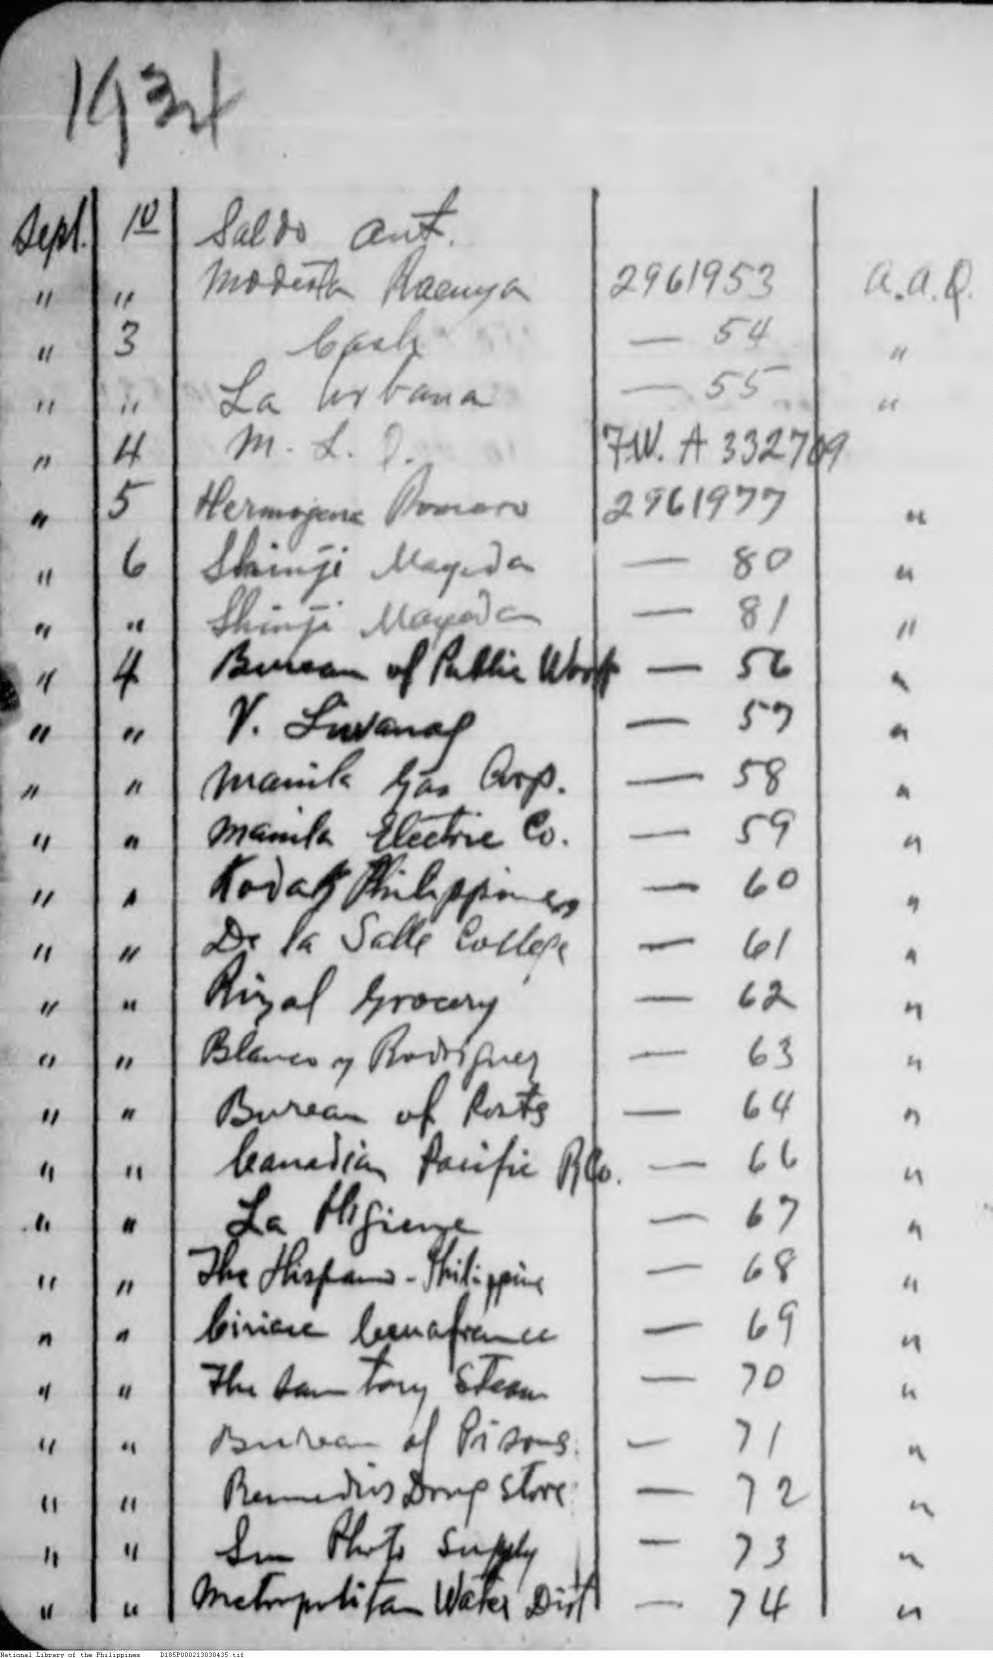 1934
Sept. 10 Saldo ant.
" " Modesta 2961953 A.A.Q.
" 3 Cash — 54 "
" " La Urbana — 55 "
" 4 M. L. F.W. A 332709
" 5 2961977 "
" 6 Shinji Mayeda — 80 "
" " Shinji Mayeda — 81 "
" 4 Bureau of Public Works — 56 "
" " V. Liwanag — 57 "
" " Manila Gas Corp. — 58 "
" " Manila Electric Co. — 59 "
" " Kodak Philippines — 60 "
" " De la Salle College — 61 "
" " Rizal Grocery — 62 "
" " Blanco y Rodriguez — 63 "
" " Bureau of Posts — 64 "
" " Canadian Pacific R Co. — 66 "
" " La Higiene — 67 "
" " The Hispano-Philippine — 68 "
" " — 69 "
" " The Sanitary Steam — 70 "
" " Bureau of Prisons — 71 "
" " Remedios Drug Store — 72 "
" " Sun Photo Supply — 73 "
" " Metropolitan Water Dist — 74 "
National Library of the Philippines D185P000213030435.tif